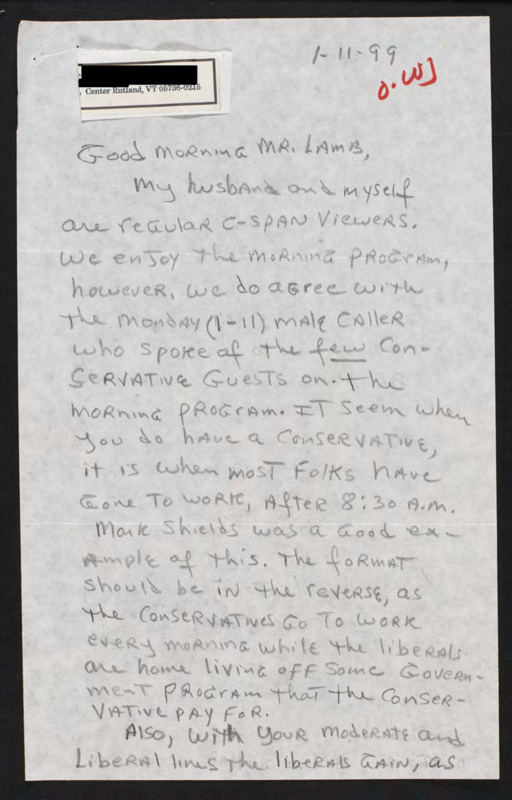 1-11-99
O.WJ
Center Rutland, VT 05736-0215
Good Morning Mr. Lamb,
My husband and myself
are regular C-SPAN viewers.
We enjoy the morning program,
however, we do agree with
the Monday (1-11) male caller
who spoke of the few con-
servative guests on the
morning program. It seem when
you do have a conservative,
it is when most folks have
gone to work, after 8:30 A.M.
Mark Shields was a good ex-
ample of this. The format
should be in the reverse, as
the conservatives go to work
every morning while the liberals
are home living off some govern-
ment program that the conser-
vative pay for.
Also, with your moderate and
liberal lines the liberals gain, as